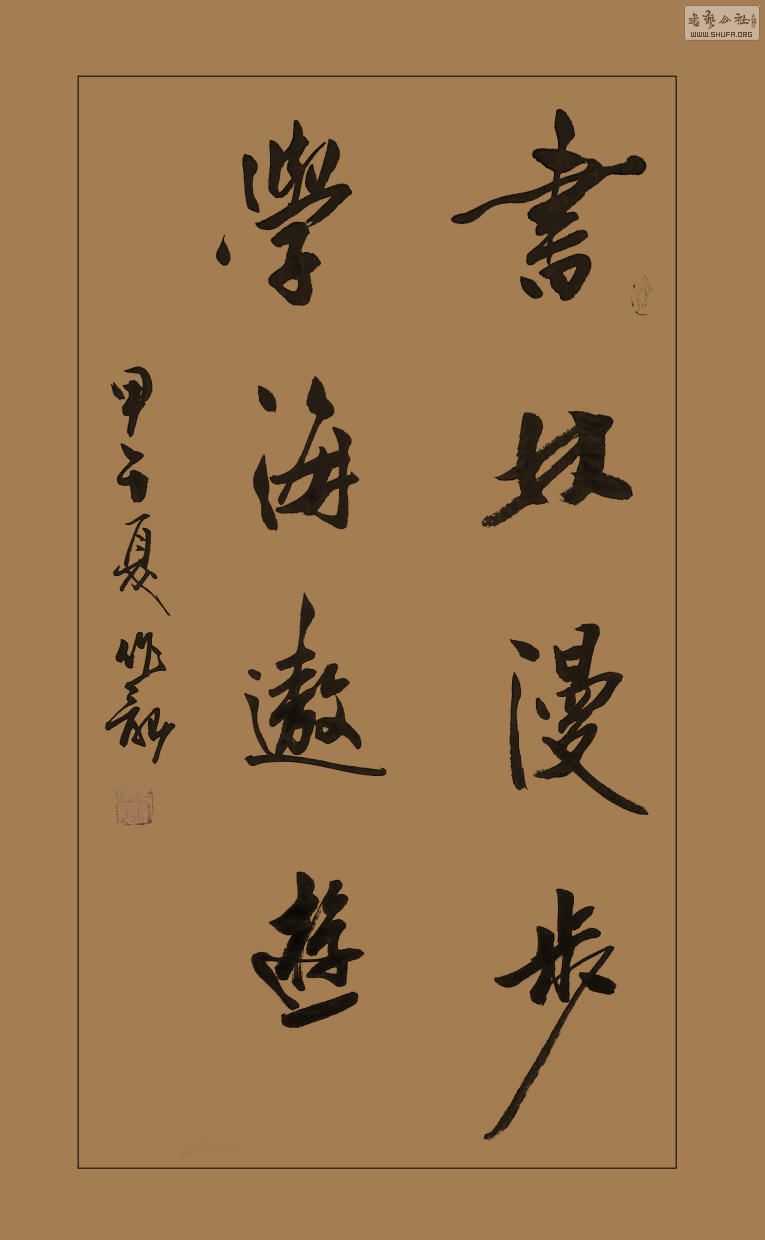 書林漫步
學海遨遊
甲午夏
書藝公社
WWW.SHUFA.ORG